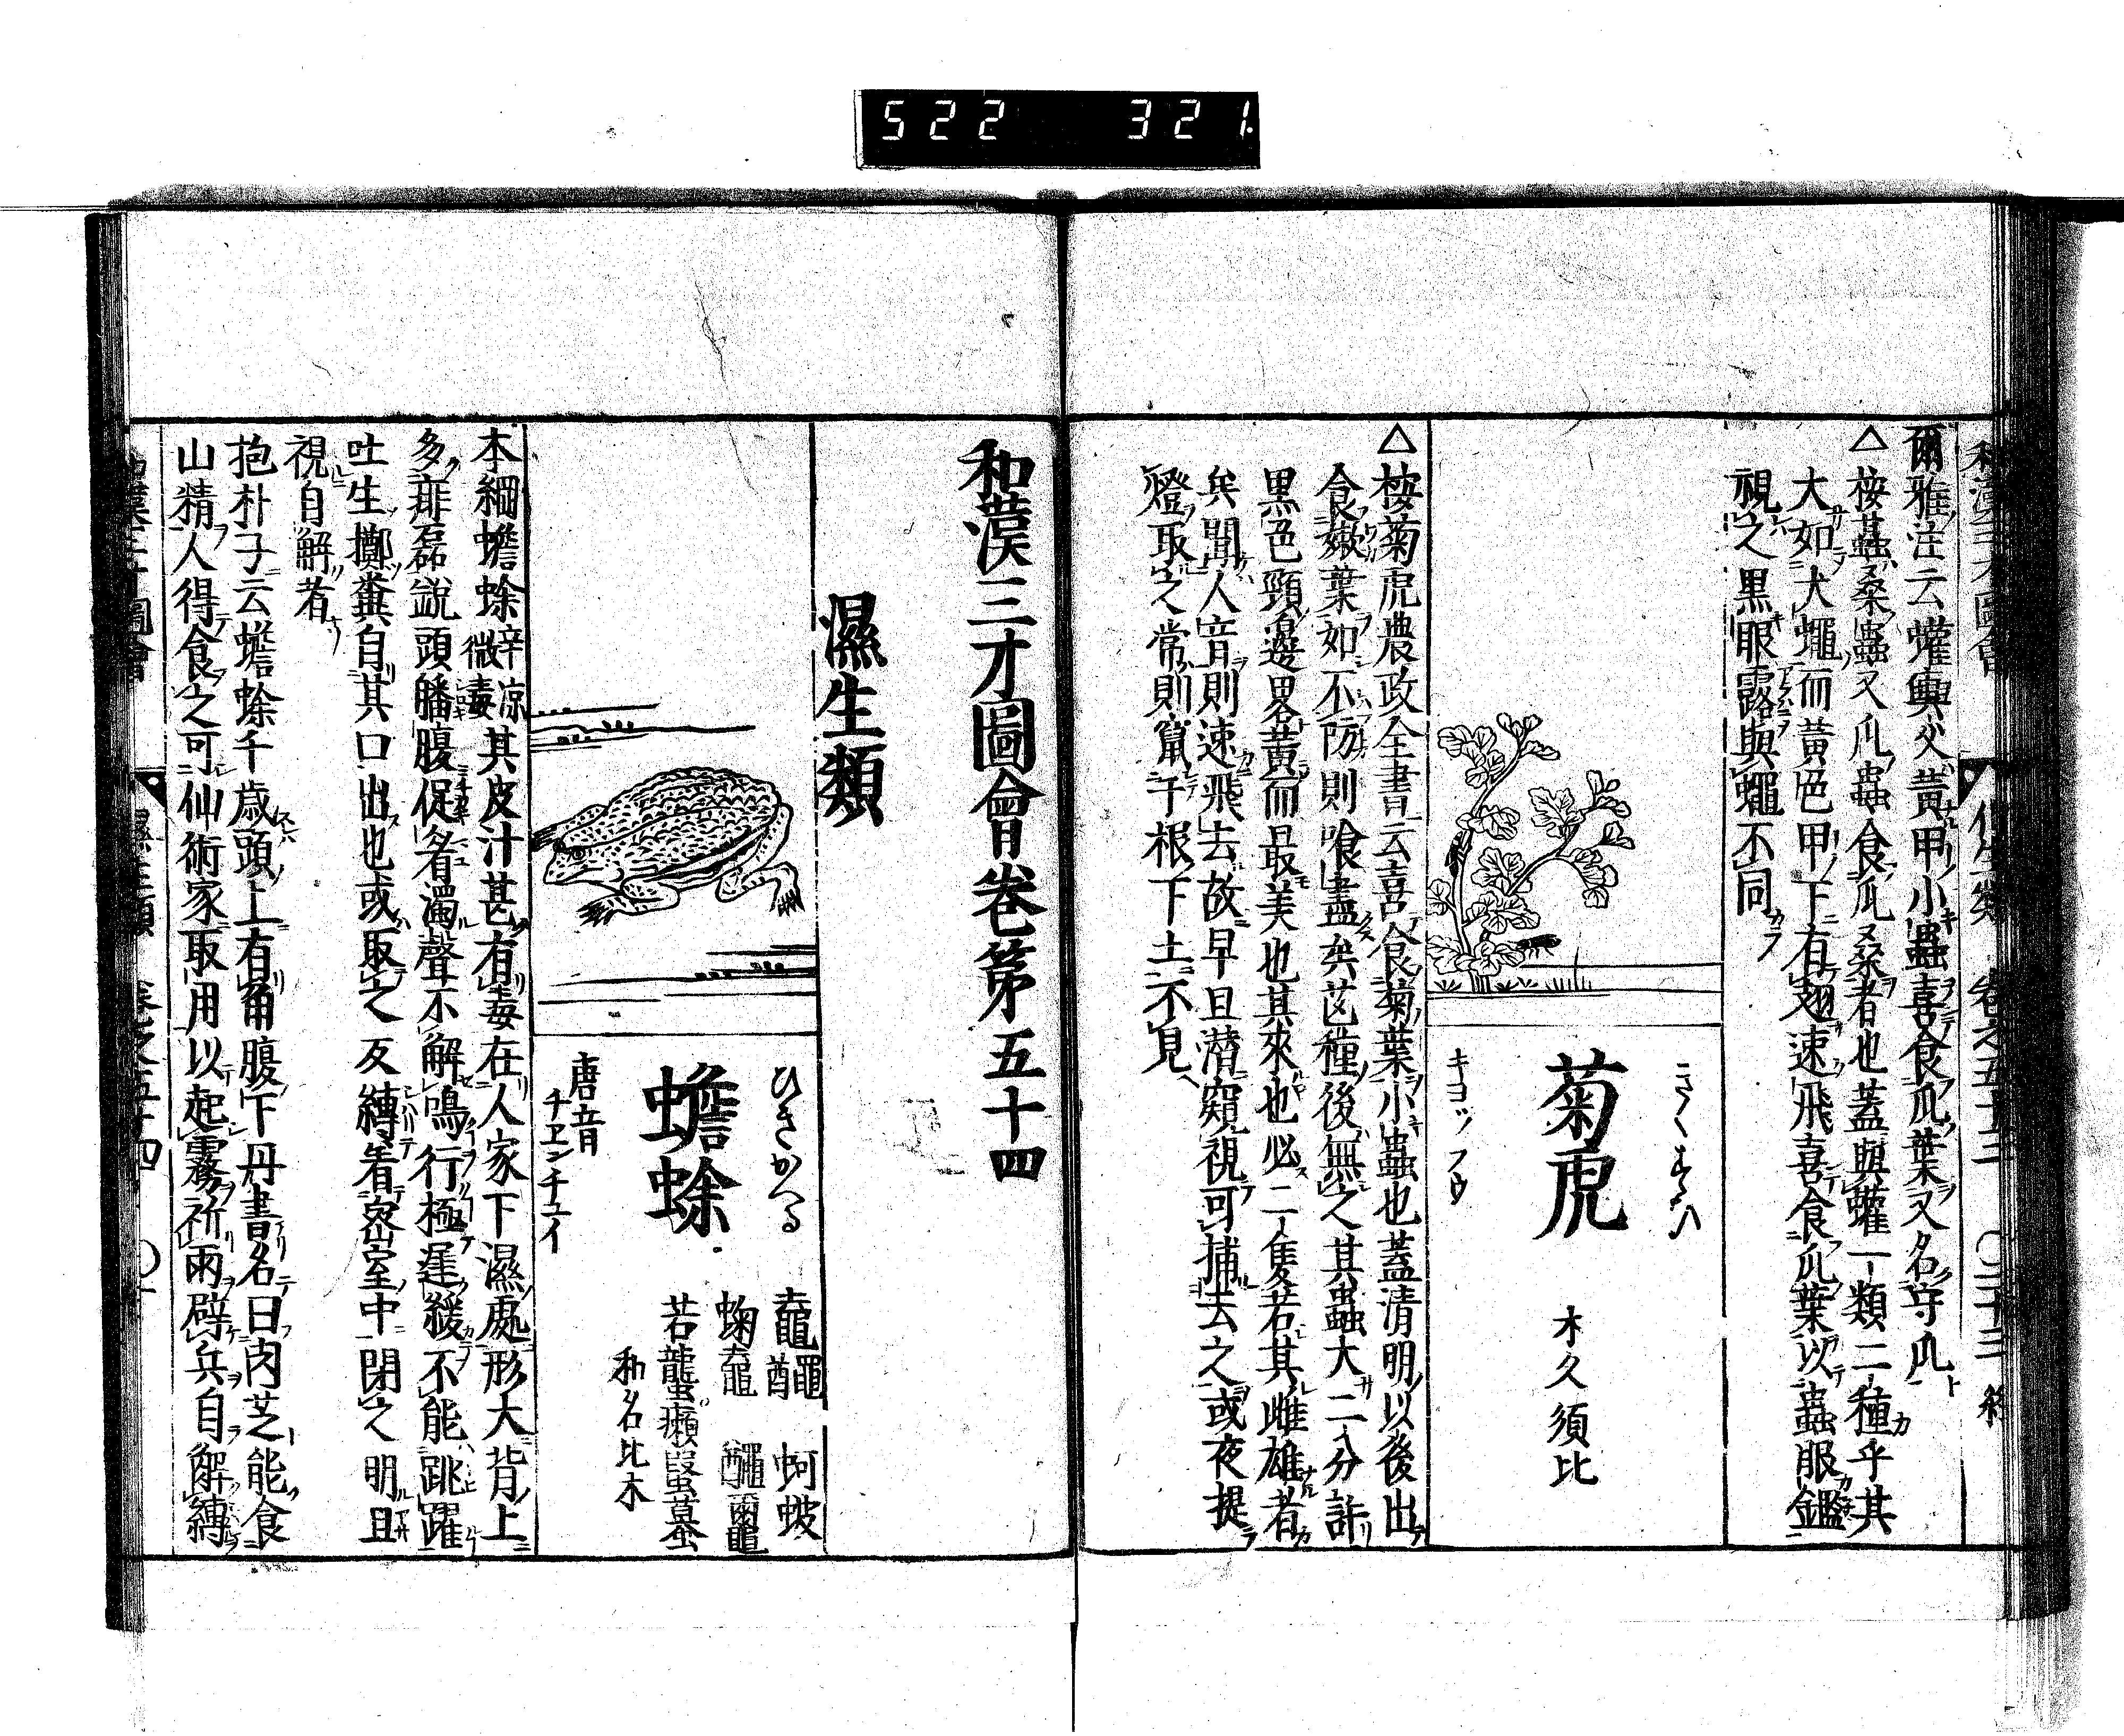 522 321.
爾雅注云蠸輿父黃甲小蟲喜食瓜葉又名守瓜
△桉蟇蟲桑蟲又瓜蟲食瓜桑者也蓋與蠸一類二種乎其
大如大蠅而黃色甲下有翅速飛喜食瓜葉以蟲眼鑑
視之黒眼露與蠅不同
きくすひ
菊虎
木久須比
キヨッフウ
△桉菊虎農政全書云喜食菊葉小蟲也蓋清明以後出
食嫩葉如不防則喰盡矣苗種後無之其蟲大二八分許
黒色頸邊畧黃而最美也其來也必二隻若其雌雄者
矣聞人音則速飛去故早旦潜窺視可捕去之或夜提
燈取之常則竄于根下土不見
和漢三才圖會卷第五十四
濕生類
ひきかへる
蟾蜍
唐音
チエンチユイ
鼀𪓰 蚵蚾
蝈鼀
苦蠪 癩蝦蟇
和名比木
本綱蟾蜍辛凉微毒其皮汁甚有毒在人家下濕處形大背上
多痱磊鋭頭皤腹促眉濁聲不解鳴行極遲緩不能跳躍
吐生擲糞自其口出也或取之反縛着密室中閉之明旦
視自解者
抱朴子云蟾蜍千歳頭上有角腹下丹書名曰肉芝能食
山精人得食之可仙術家取用以起霧祈雨辟兵自解縛